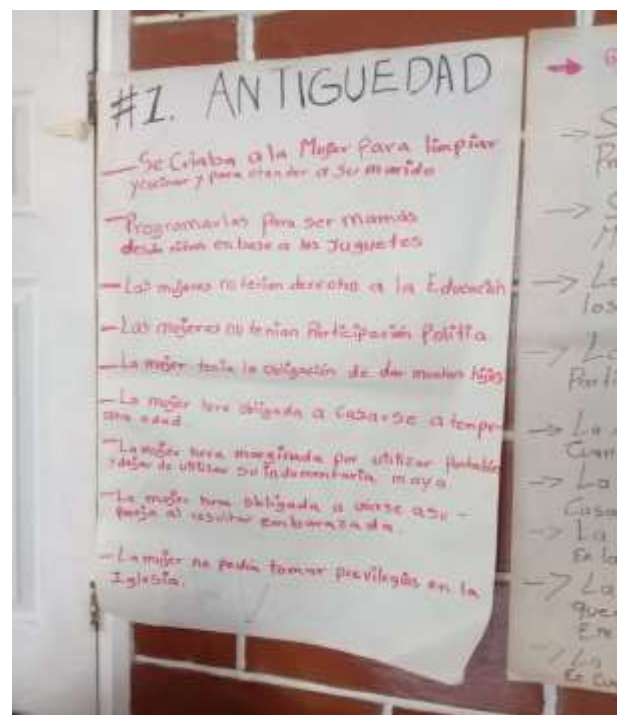 #1. ANTIGUEDAD
— Se Criaba a la Mujer Para limpiar
y cocinar y para atender a su marido
— Programarlas para ser mamás
desde niñas en base a los Juguetes
— Las mujeres no tenian derecho a la Educación
— Las mujeres no tenian Participación Politia
— La mujer tenia la obligación de dar muchos hijos
— La mujer hera obligada a casarse a tempr
ana edad.
— La mujer hera marginada por utilizar Pantalón
y dejar de utilizar su indumentaria maya
— La mujer hera obligada a unirse a su -
pareja al resultar embarazada.
— La mujer no podia tomar previlegios en la
Iglesia.
→ G
→ S
Pa
→ S
M
→ La
los
→ La
Parti
→ La
Cuan
→ La
Casa
→ La
En la
→ La
que
En
→ La